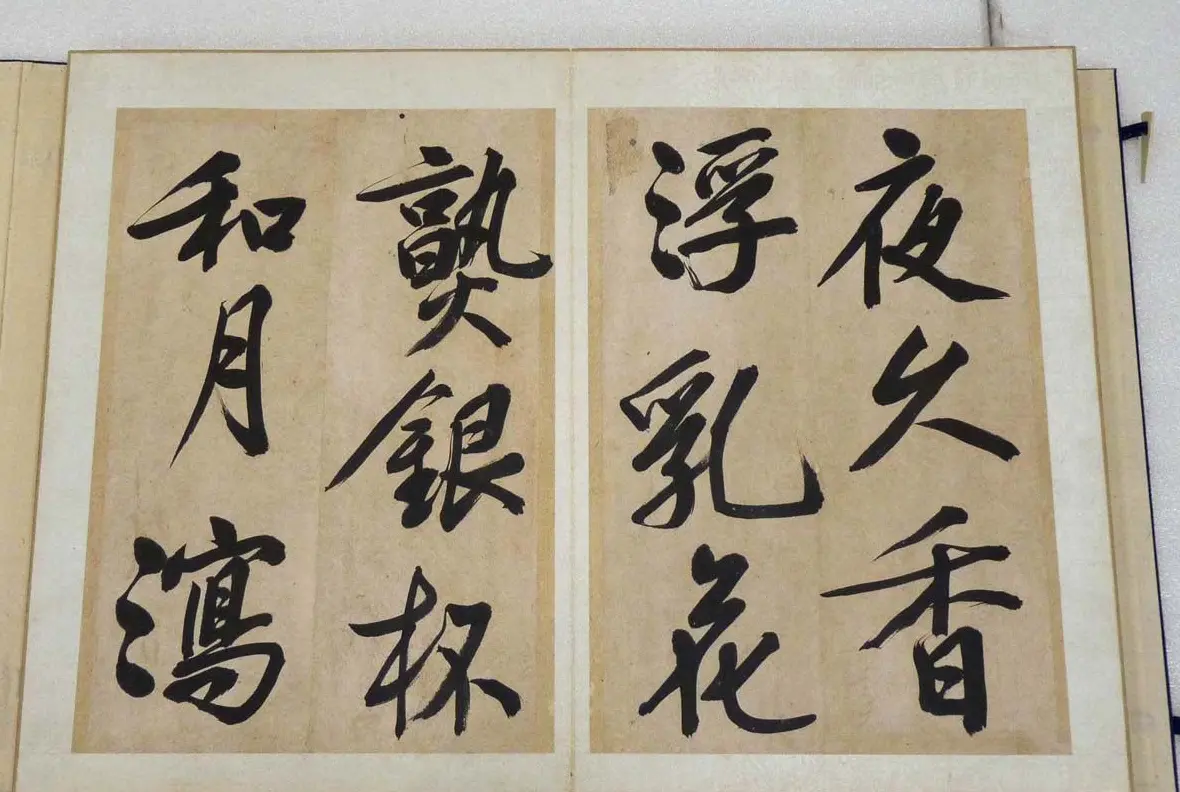 夜久香
浮乳花
熟銀杯
和月瀉